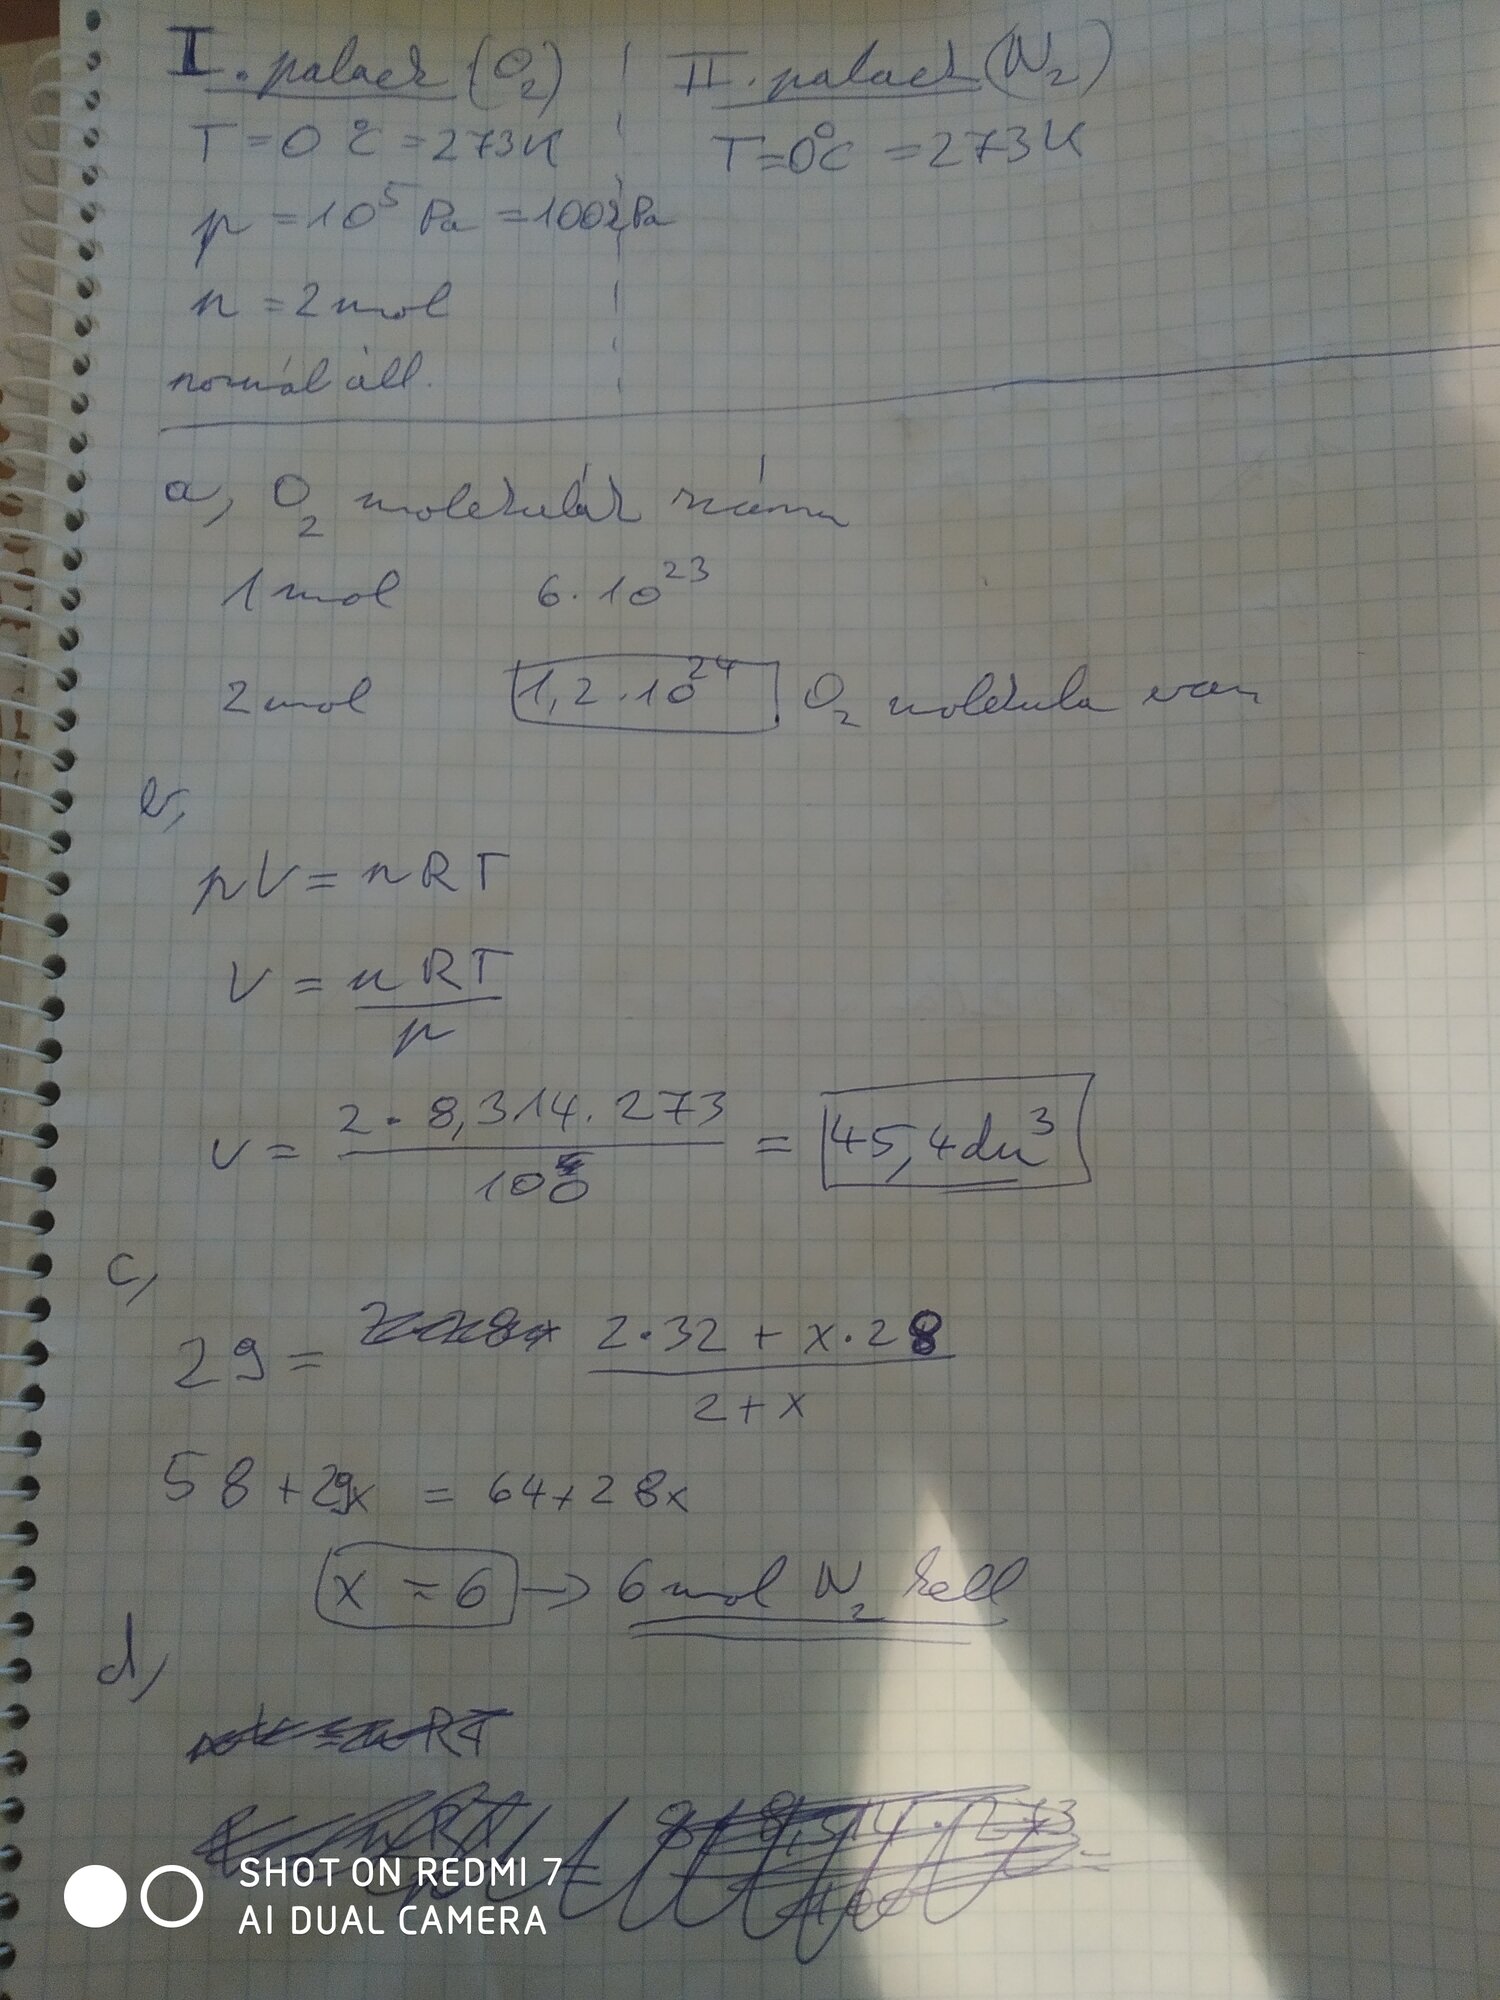 I. palack (O2) II. palack (N2)
T = 0 °C = 273K T = 0°C = 273K
p = 10^5 Pa = 100kPa
n = 2 mol
normál áll.
a, O2 molekulák száma
1 mol 6 · 10^23
2 mol 1,2 · 10^24 O2 molekula van
b,
pV = nRT
V = nRT / p
V = 2 · 8,314 · 273 / 100 = 45,4 dm^3
c,
29 = 2·32 + x·28 / 2 + x
58 + 29x = 64 + 28x
x = 6 → 6 mol N2 kell
d,
RT
8 · 8,314 · 273
SHOT ON REDMI 7
AI DUAL CAMERA